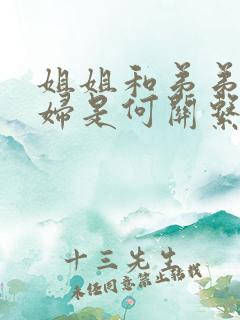 姐姐和弟弟
婦是何關繫
十三先生
未经同意禁止转载